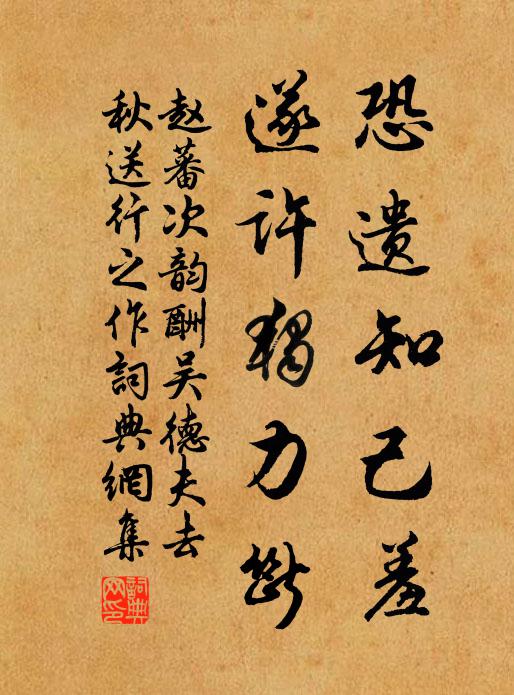 恐遗知己羞
遂许独力断
赵蕃次韵酬吴德夫去
秋送行之作詞典網集
詞典網印